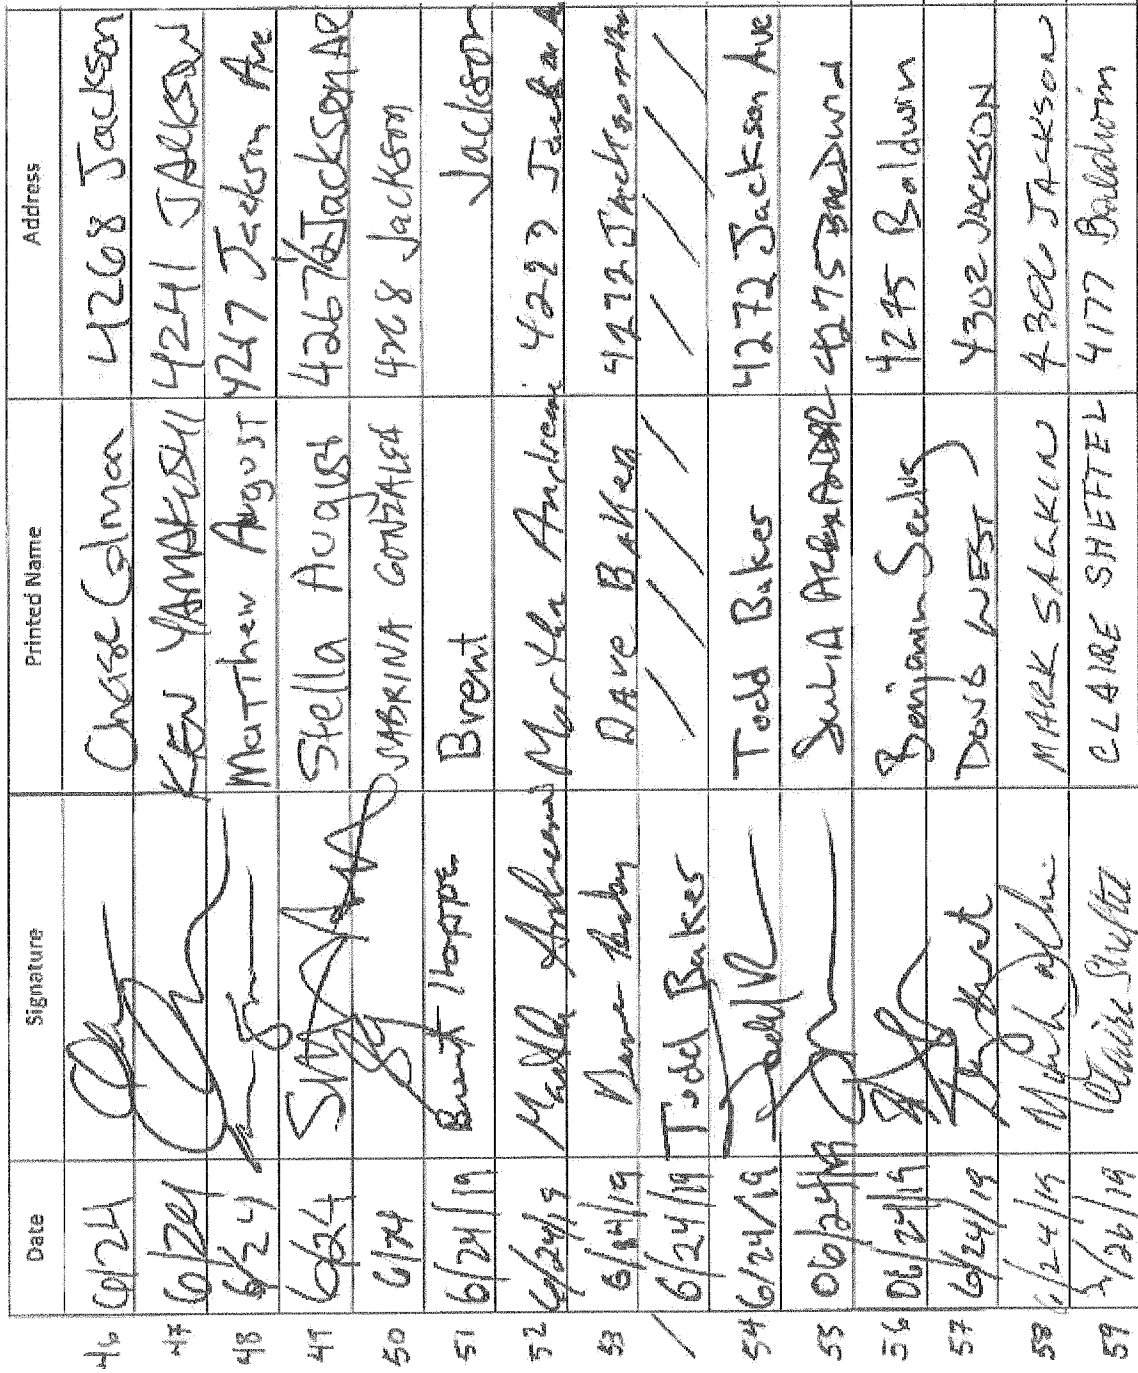 Date Signature Printed Name Address
46 6/24 Chase Colman 4268 Jackson
47 6/24 KEN YAMAKOSHI 4241 JACKSON
48 6/24 Matthew August 4267 Jackson Ave
49 6/24 Stella August 4267 1/2 Jackson Ave
50 6/24 SABRINA GONZALEZ 4268 Jackson
51 6/24/19 Brent Hoppe Brent Jackson
52 6/24/19 Martha Andreani Martha Andreani 4223
53 6/24/19 Dave Baker 4272 Jackson Ave
/ 6/24/19 Todd Baker / / / / / / / /
54 6/24/19 Todd Baker 4272 Jackson Ave
55 06/24/19 JULIA 4275 BALDWIN
56 06/24/19 Benjamin 4275 Baldwin
57 6/24/19 DOUG WEST 4302 JACKSON
58 6/24/19 MARK SALKIN 4306 JACKSON
59 /26/19 Claire Sheftel CLAIRE SHEFTEL 4177 Baldwin